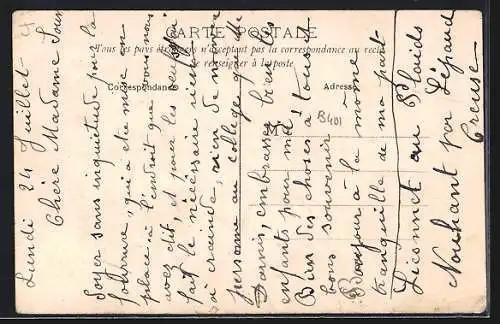 CARTE POSTALE
Tous les pays étrangers n'acceptant pas la correspondance au recto
se renseigner à la poste
Correspondance
Adresse
M
B401
Lundi 24 Juillet
Chère Madame
Soyez sans inquiétude pour la
qui a été mise en
place à l'endroit que vous nous
avez dit, et pour les
fait le nécessaire rien
à craindre, rien de
personne au collège que
embrassez bien les
enfants pour moi
Bien des choses à tous
bons souvenir
Bonjour à la môme
tranquille de ma part
au
Nouhant par Lépaud
Creuse